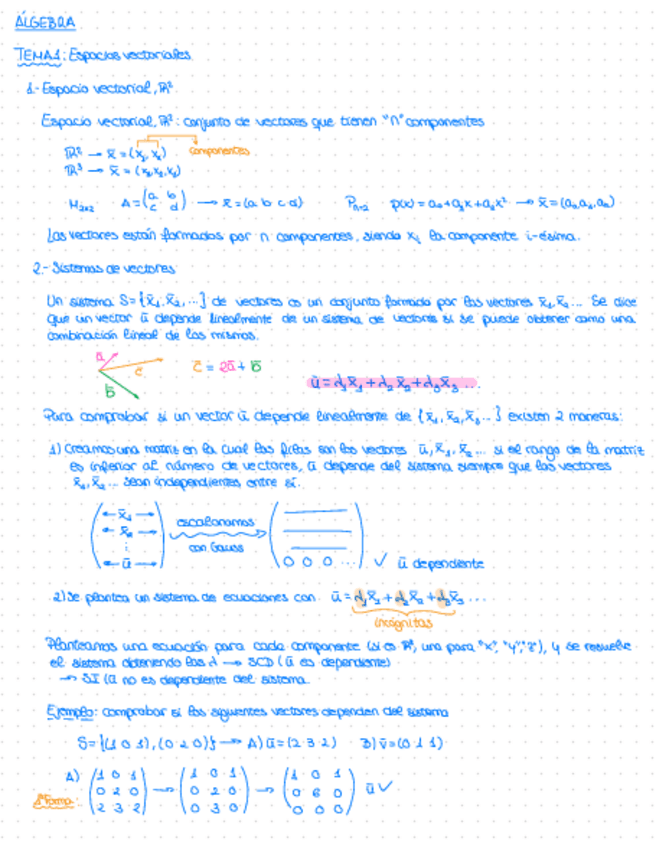 ÁLGEBRA
TEMA1: Espacios vectoriales
1.- Espacio vectorial, ℝⁿ
Espacio vectorial, ℝⁿ: conjunto de vectores que tienen "n" componentes
ℝ² → x̄ = (x₁, x₂) componentes
ℝ³ → x̄ = (x₁, x₂, x₃)
M₂ₓ₂ A = (a b / c d) → x̄ = (a b c d) Pₙ₌₂ p(x) = a₀ + a₁x + a₂x² → x̄ = (a₀, a₁, a₂)
Los vectores están formados por n componentes, siendo xᵢ la componente i-ésima.
2.- Sistemas de vectores
Un sistema S = {x̄₁, x̄₂, ...} de vectores es un conjunto formado por los vectores x̄₁, x̄₂... Se dice
que un vector ū depende linealmente de un sistema de vectores si se puede obtener como una
combinación lineal de los mismos.
ā
c̄
b̄
c̄ = 2ā + b̄
ū = λ₁x̄₁ + λ₂x̄₂ + λ₃x̄₃ ...
Para comprobar si un vector ū depende linealmente de {x̄₁, x̄₂, x̄₃ ...} existen 2 maneras:
1) Creamos una matriz en la cual las filas son los vectores ū, x̄₁, x̄₂ ... si el rango de la matriz
es inferior al número de vectores, ū depende del sistema siempre que los vectores
x̄₁, x̄₂ ... sean independientes entre sí.
← x̄₁ →
← x̄₂ → escalonamos
⋮ con Gauss
← ū → 0 0 0 ... ✓ ū dependiente
2) Se plantea un sistema de ecuaciones con ū = λ₁x̄₁ + λ₂x̄₂ + λ₃x̄₃ ...
incógnitas
Planteamos una ecuación para cada componente (si es ℝ³, una para "x", "y", "z"), y se resuelve
el sistema obteniendo los λ → SCD (ū es dependiente)
→ SI (ū no es dependiente del sistema.
Ejemplo: comprobar si los siguientes vectores dependen del sistema
S = {(1 0 1), (0 2 0)} → A) ū = (2 3 2) B) v̄ = (0 1 1)
A) (1 0 1 / 0 2 0 / 2 3 2) → (1 0 1 / 0 2 0 / 0 3 0) → (1 0 1 / 0 6 0 / 0 0 0) ū ✓
1ª forma: